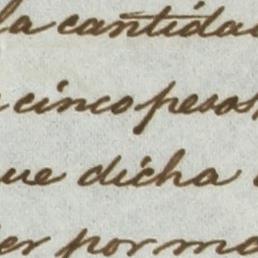 la cantidad
cinco pesos
que dicha
por